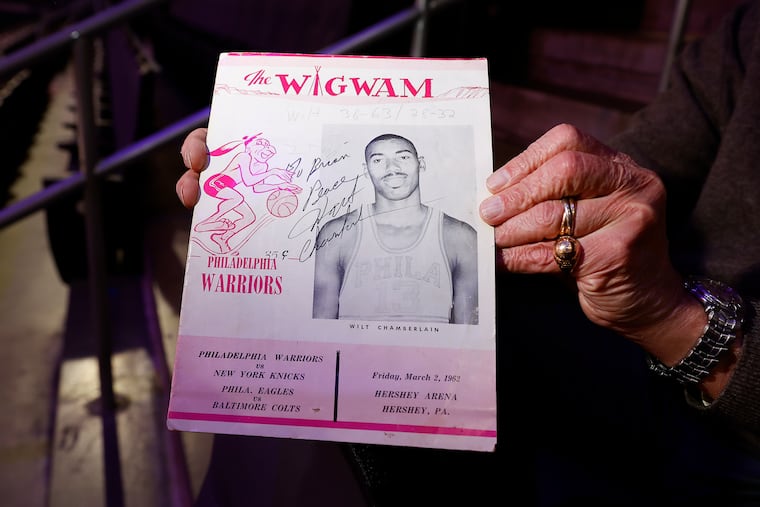 The WIGWAM
Wilt 36-63/28-32
To Brian
Peace
Wilt
Chamberlain
35¢
PHILADELPHIA
WARRIORS
PHILA
13
WILT CHAMBERLAIN
PHILADELPHIA WARRIORS
VS
NEW YORK KNICKS
PHILA. EAGLES
VS
BALTIMORE COLTS
Friday, March 2, 1962
HERSHEY ARENA
HERSHEY, PA.